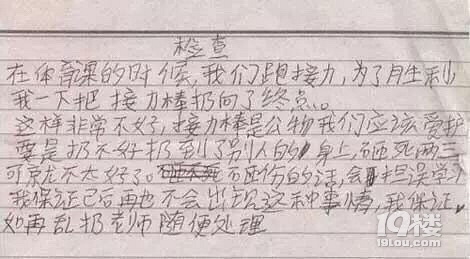 检查
在体育课的时候,我们跑接力,为了胜利
我一下把接力棒扔向了终点。
这样非常不好,接力棒是公物我们应该爱护
要是扔不好扔到了别人的身上,砸死两三
可就不太好了。砸伤的话,会耽误学习
我保证已后再也不会出现这种事情,我保证。
如再乱扔老师随便处理
19楼
19lou.com